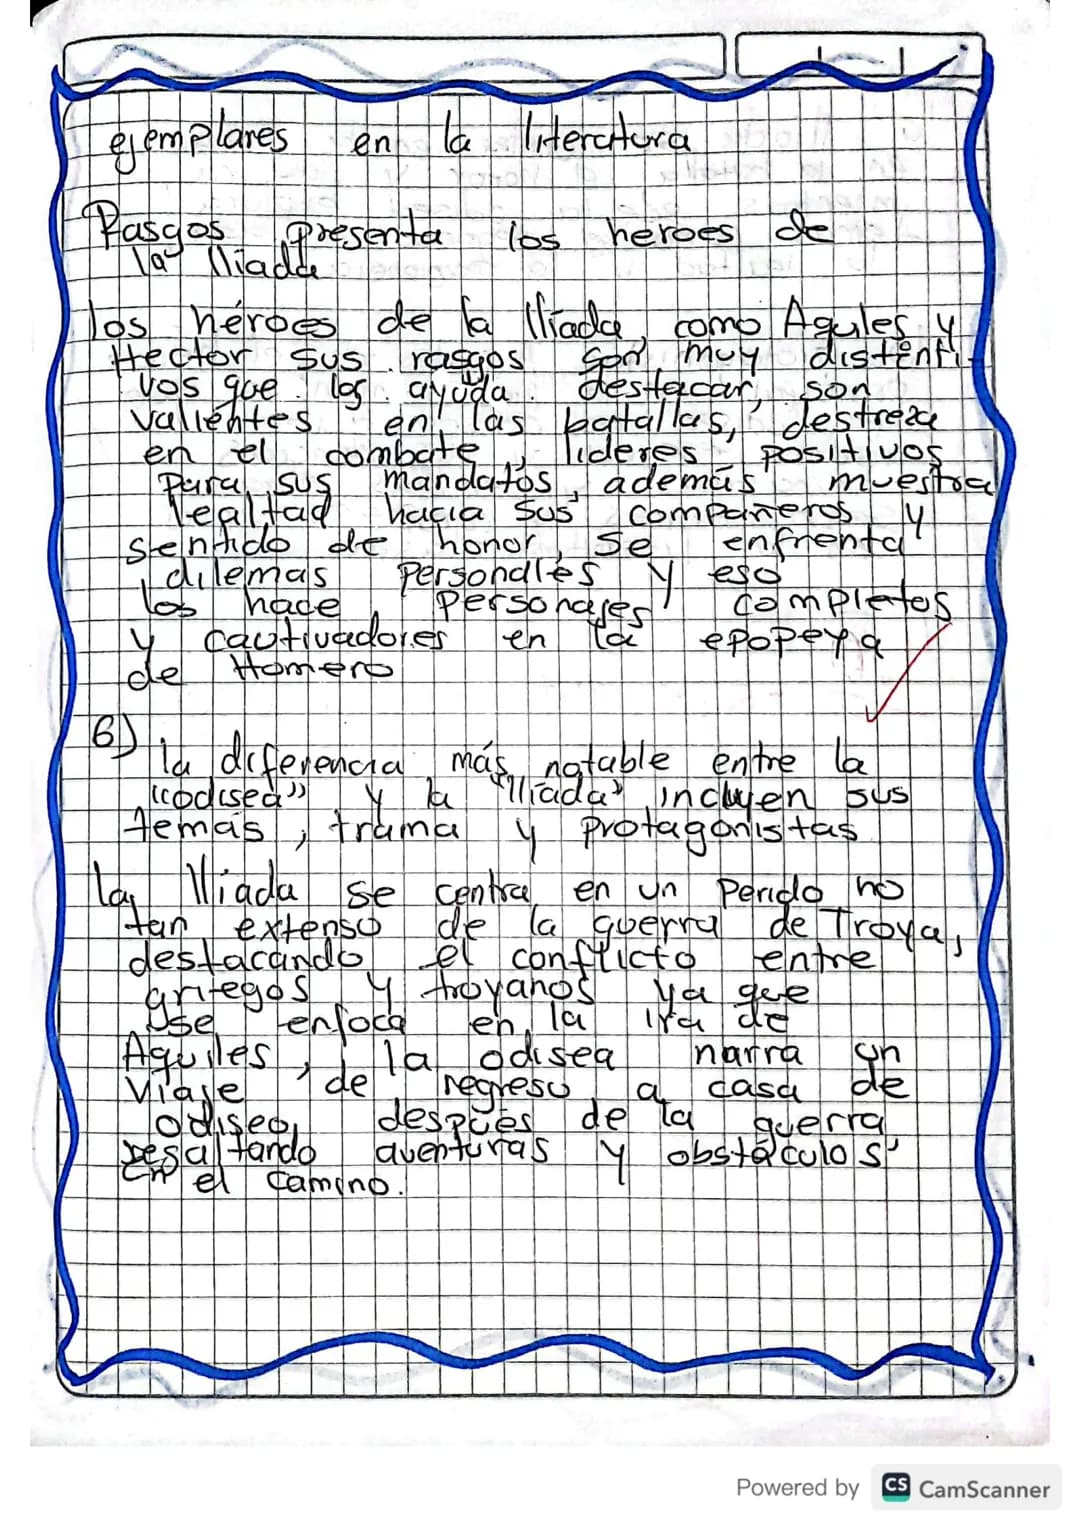 ejemplares en la literatura
Rasgos presenta los heroes de
la Iliada
los héroes de la Ilíada, como Aquiles y
Hector sus rasgos son muy distënti-
vos que los ayuda destacar, son
valientes en las batallas, destreza
en el combate, lideres positivos
para sus mandatos, además muestra
lealtad hacia sus compañeros y
sentido de honor, se enfrenta
dilemas personales y eso
los hace personajes completos
y cautivadores en la epopeya
de Homero
6)
la diferencia más notable entre la
"odisea" y la "Iliada" incluyen sus
temas, trama y protagonistas
la Iliada se centra en un perido no
tan extenso de la guerra de Troya,
destacando el conflicto entre
griegos y troyanos ya que
se enfoca en la ira de
Aquiles, la odisea narra un
viaje de regreso a casa de
odiseo, después de la guerra
resaltando aventuras y obstáculos
en el camino.
Powered by CS CamScanner